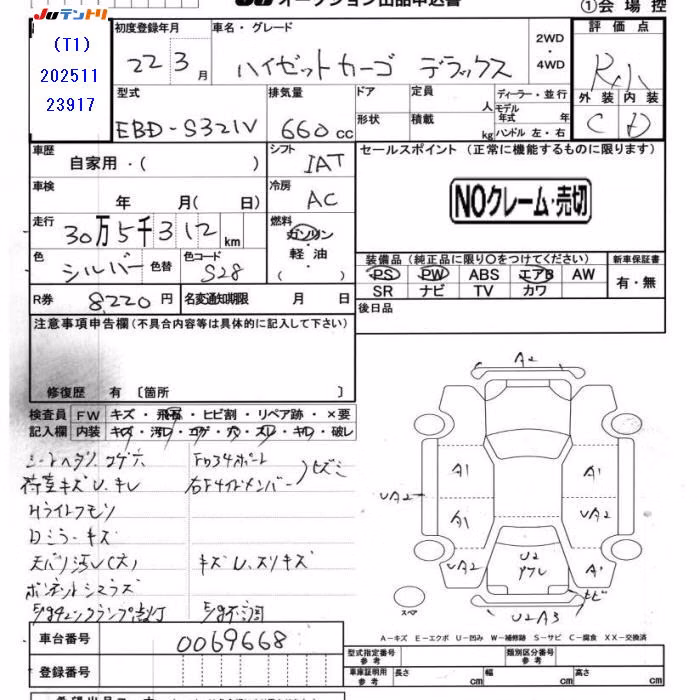 Juテントリ
オークション出品申込書
①会場控
(T1)
202511
23917
初度登録年月
車名・グレード
22 3月
ハイゼットカーゴ デラックス
2WD
・
4WD
評価点
外装 内装
C D
型式
排気量
ドア
定員
人
ディーラー・並行
モデル
年式 年
形状
積載
kg
ハンドル 左・右
EBD-S321V
660 cc
車歴
自家用・( )
シフト
IAT
セールスポイント (正常に機能するものに限ります)
NOクレーム・売切
車検
年 月( 日)
冷房
AC
走行
30万5千312 km
燃料
ガソリン
・
軽油
・
( )
色
シルバー
色替
色コード
S28
装備品 (純正品に限り○をつけてください)
新車保証書
PS PW ABS エアB AW
SR ナビ TV カワ
有・無
R券
8,220円
名変通知期限 月 日
後日品
注意事項申告欄(不具合内容等は具体的に記入して下さい)
修復歴 有 〔箇所 〕
検査員
記入欄
FW キズ・飛石・ヒビ割・リペア跡・×要
内装 キズ・汚レ・コゲ・穴・スレ・キレ・破レ
シートヘタリ コゲ穴
荷室キズU、キレ
Hライトクモリ
Dミラーキズ
天バリ汚レ(大)
キズU、スリキズ
A2
A1
A1
A1
UA2
UA2
UA2
UA2
A1
U2
UA3
スペア
A-キズ E-エクボ U-凹み W-補修跡 S-サビ C-腐食 XX-交換済
車台番号
0069668
登録番号
型式指定番号
参考
類別区分番号
参考
車庫証明用
参考
長さ cm
幅 cm
高さ cm